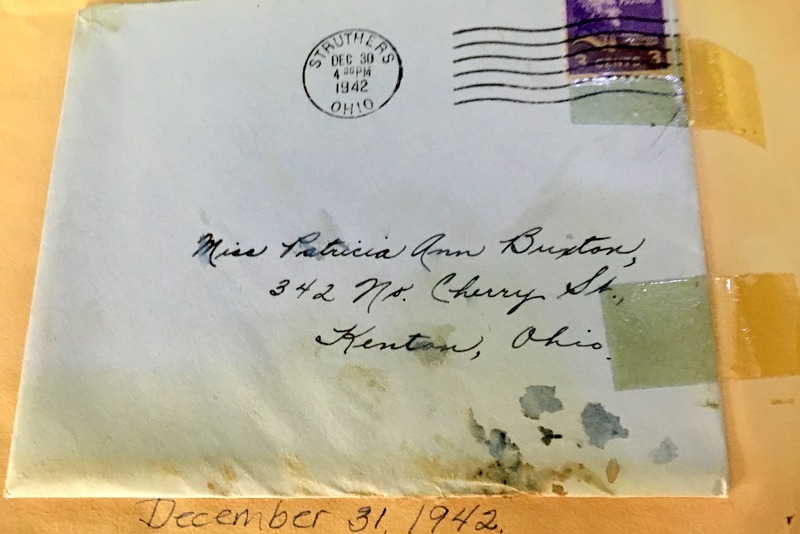 STRUTHERS
DEC 30
4 30 PM
1942
OHIO
3 CENTS 3
Miss Patricia Ann Buxton,
342 No. Cherry St.,
Kenton, Ohio.
December 31, 1942.